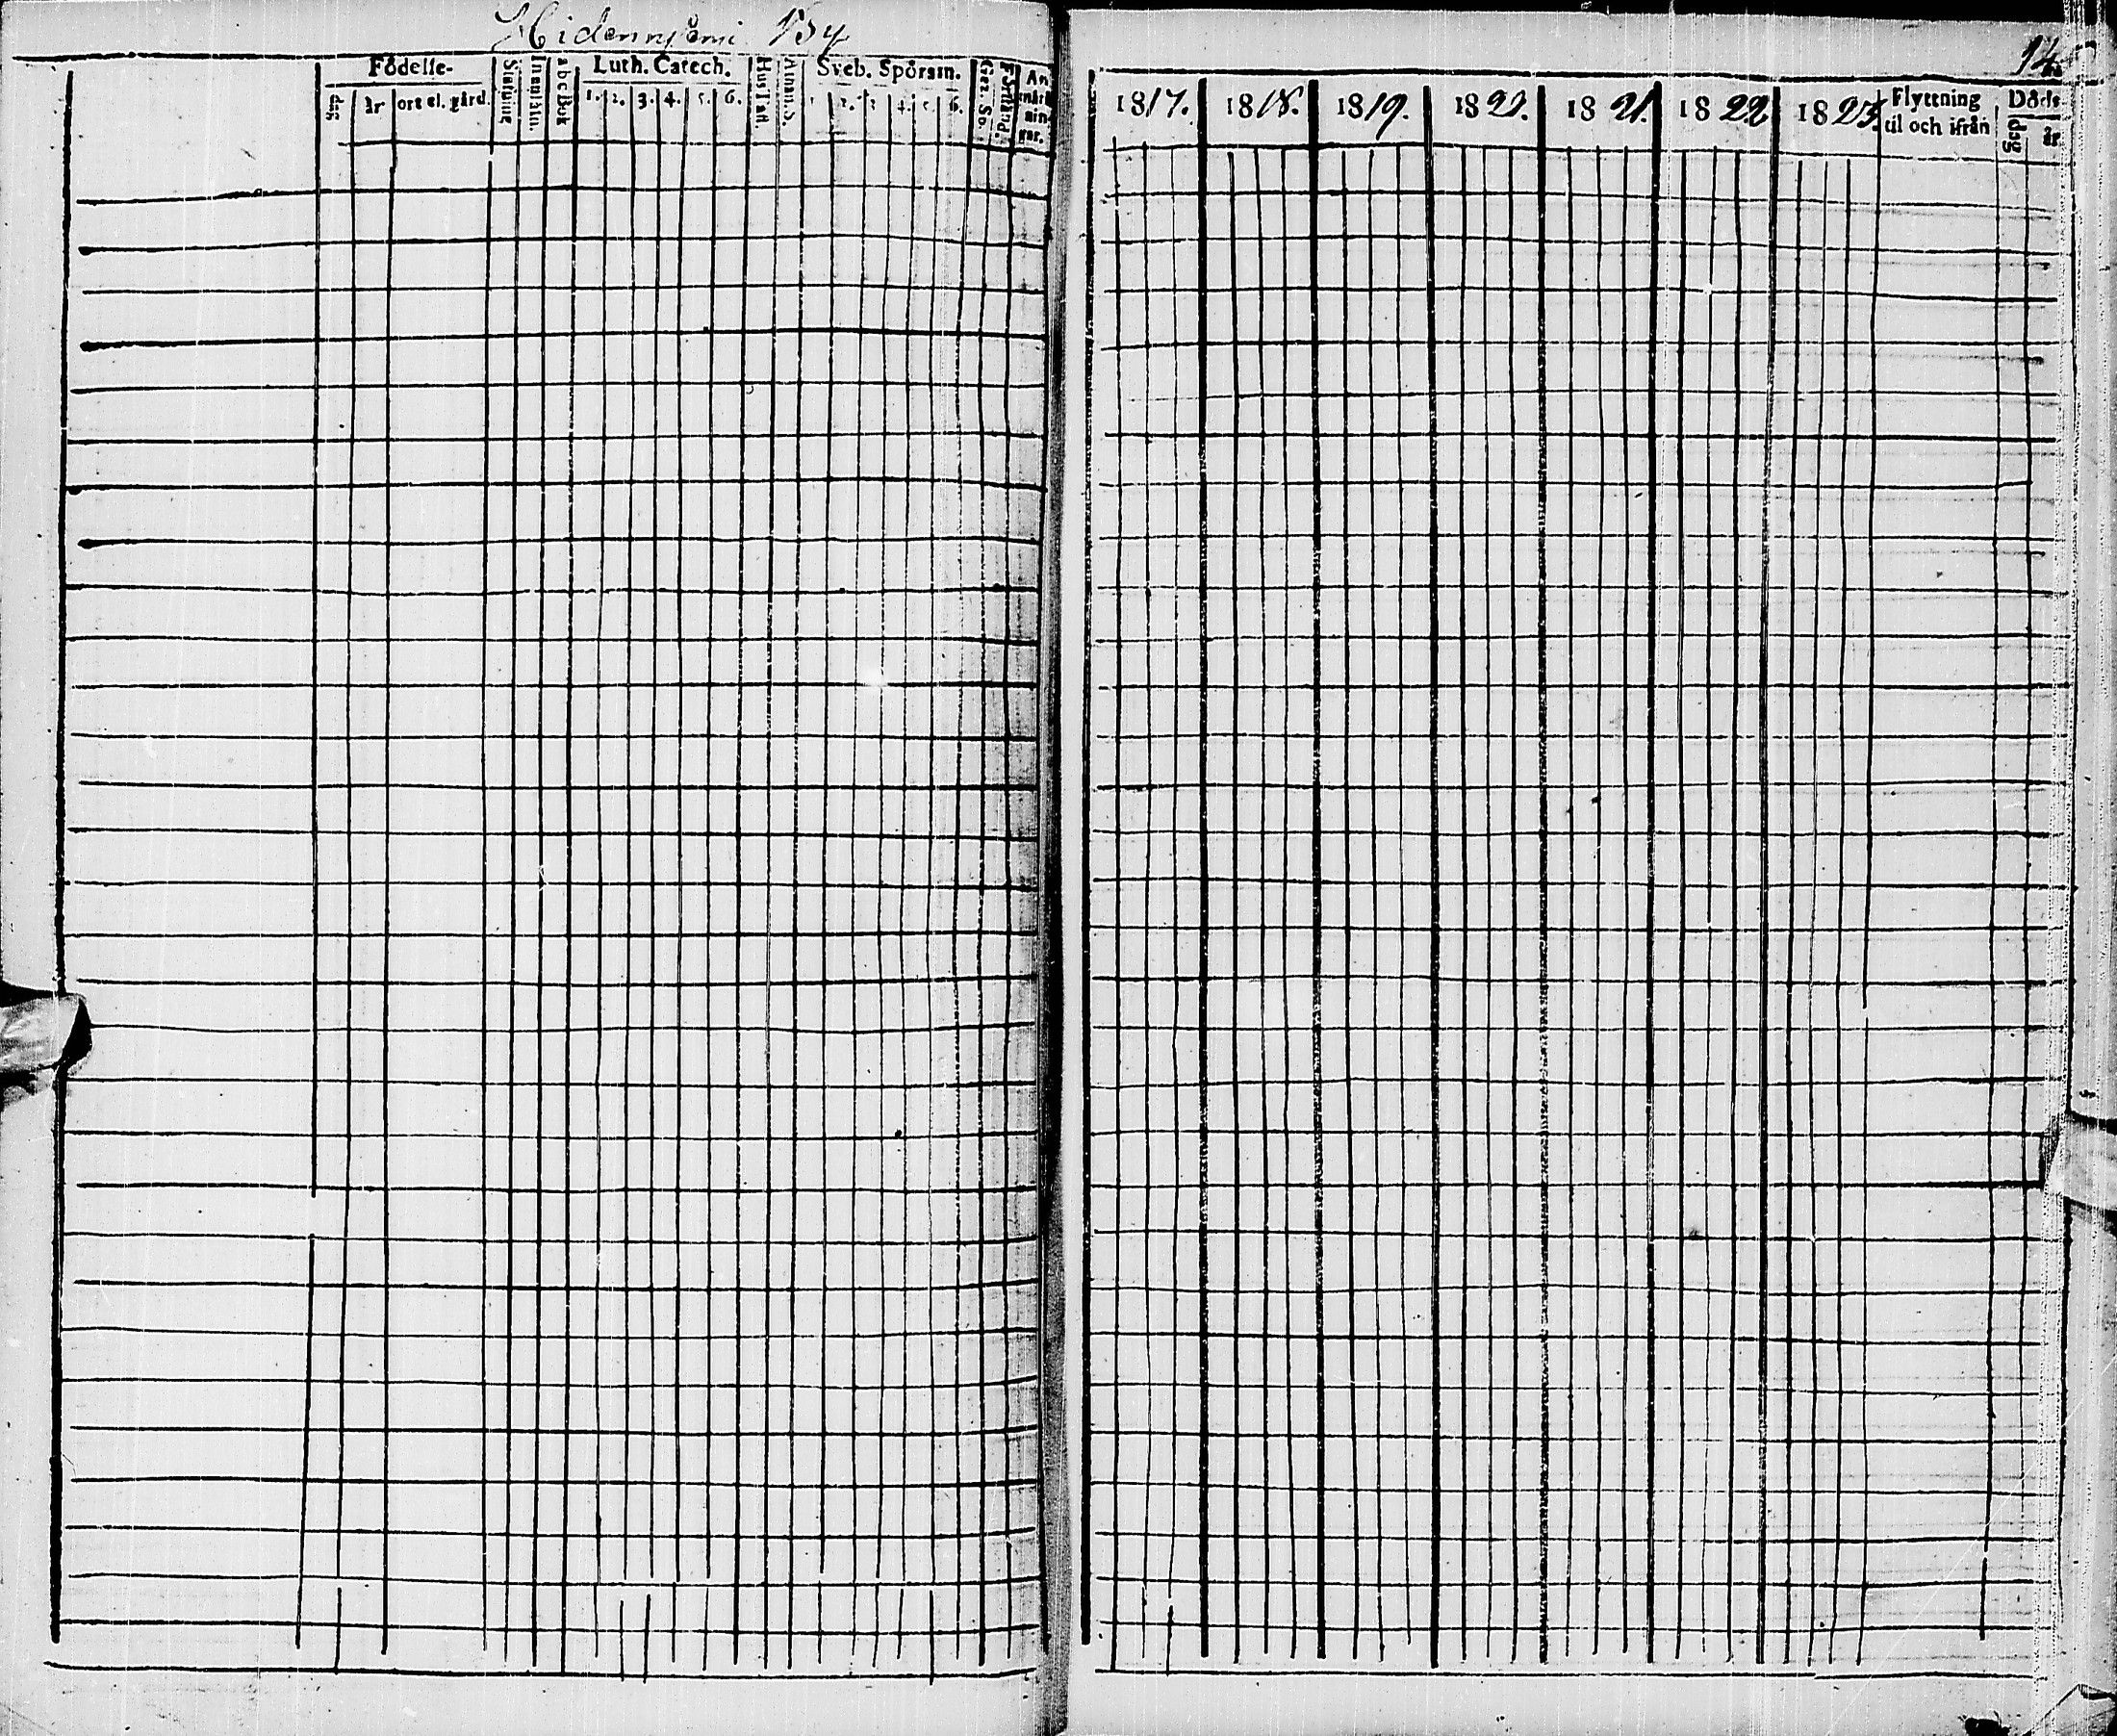 Hidenniemi By
Födelse-
dag
år
ort el. gård.
Innanläsn.
abc Bok
Luth. Catech.
1. 2. 3. 4. 5. 6.
Hus Tafl.
Athan. S.
Sveb. Spörsm.
1 2. 3 4. 5. 6.
Förstånd.
An
märk
nin-
gar.
1817.
1818.
1819.
18 21.
18 22
18 23.
Flyttning
til och ifrån
Döds-
dag
år